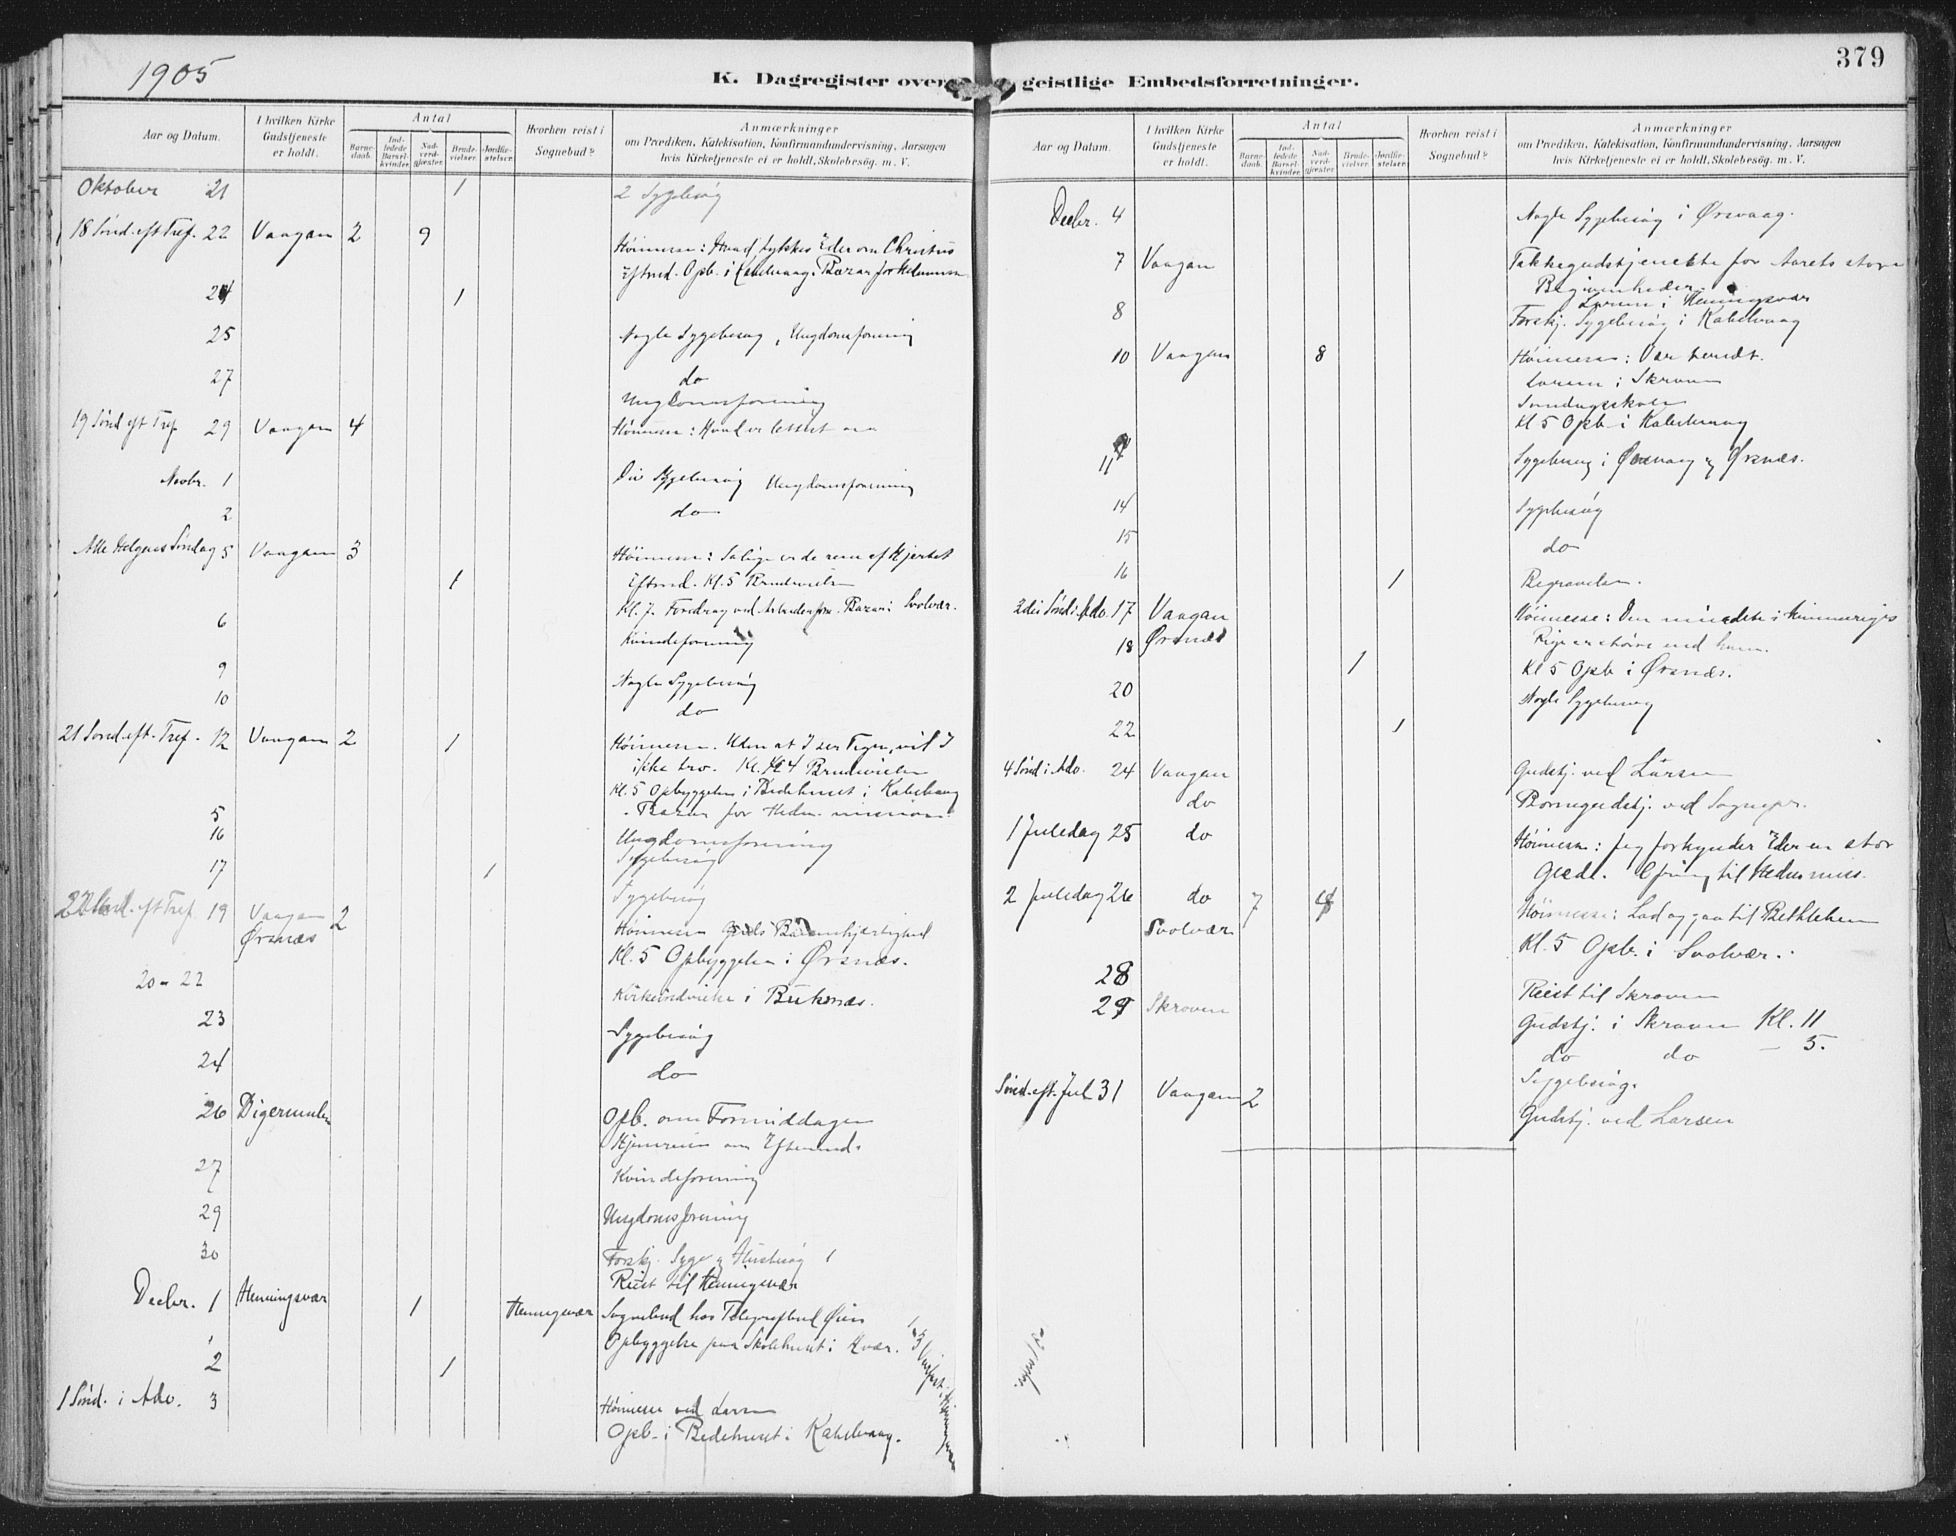 1905
K. Dagregister over geistlige Embedsforretninger.
379
Aar og Datum.
I hvilken Kirke Gudstjeneste er holdt.
Antal
Barnedaab.
Indledede Barselkvinder.
Nadverdgjester.
Brudevielser.
Jordfæstelser.
Hvorhen reist i Sognebud?
Anmærkninger
om Prædiken, Katekisation, Konfirmandundervisning, Aarsagen
hvis Kirketjeneste ei er holdt, Skolebesøg. m. V.
Oktober 21 1 2 Sygebesøg
18 Sønd. eft Tref. 22 Vaagan 2 9 Høimesse: Hvad tykkes Eder om Christus
Eftmd. Opb. i Kabelvaag. Bazar for
24 1
25 Nogle Sygebesøg, Ungdomsforening
27 do
Ungdomsforening
19 Sønd eft Tref. 29 Vaagan 4 Høimesse: Hvad er lettest
Novbr. 1 Div Sygebesøg Ungdomsforening
2 do
Alle Helgens Søndag 5 Vaagan 3 Høimesse: Salige er de rene af Hjertet
1 Eftmd. Kl. 5 Brudevielse
Kl. 7. Foredrag ved Arbeiderfor. Bazar i Svolvær.
6 Kvindeforening
9 Nogle Sygebesøg
10 do
21 Sønd. eft. Tref. 12 Vaagan 2 1 Høimesse. Uden at I ser Tegn, vil I
ikke tro. Kl. 4 Brudevielse
Kl. 5 Opbyggelse i Bedehuset i Kabelvaag
5 Bazar for Hedn. mission
16 Ungdomsforening
Sygebesøg
17 1 Sygebesøg
22 Sønd. eft Tref. 19 Vaagan 2 Høimesse Guds Barmhjertighed
Ørsnæs Kl. 5 Opbyggelse i Ørsnæs.
20 - 22 Kirkeindvielse i Buksnæs.
23 Sygebesøg
24 do
26 Digermulen Opb. om Formiddagen
Hjemreise om Eftermd.
27 Kvindeforening
29 Ungdomsforening
30 Forskj. Syge og Husbesøg 1
Reist til Henningsvær
Decbr. 1 Henningsvær 1 Henningsvær Sognebud hos Telegrafbud
Opbyggelse paa Skolehuset i Hvær.
2 1
1 Sønd. i Adv. 3 Høimesse ved Larsen
Opb. i Bedehuset i Kabelvaag.
Aar og Datum.
I hvilken Kirke Gudstjeneste er holdt.
Antal
Barnedaab.
Indledede Barselkvinder.
Nadverdgjester.
Brudevielser.
Jordfæstelser.
Hvorhen reist i Sognebud?
Anmærkninger
om Prædiken, Katekisation, Konfirmandundervisning, Aarsagen
hvis Kirketjeneste ei er holdt, Skolebesøg. m. V.
Decbr. 4 Nogle Sygebesøg i Ørsvaag.
7 Vaagan Takkegudstjeneste for Aarets store
Begivenheder.
Larsen i Henningsvær
8 Forskj. Sygebesøg i Kabelvaag
10 Vaagan 8 Høimesse: Vær beredt.
Larsen i Skroven
Søndagsskole
Kl 5 Opb i Kabelvaag
11 Sygebesøg i Ørsvaag og Ørsnæs.
14 Sygebesøg
15 do
16 1 Begravelse.
3die Sønd i Adv. 17 Vaagan Høimesse: Den mindste i Himmeriges
Rige er større end ham.
18 Ørsnæs 1 Kl 5 Opb i Ørsnæs.
20 Nogle Sygebesøg
22 1
4 Sønd i Adv. 24 Vaagan Gudstj. ved Larsen
do Børnegudstj. ved Sognepr.
1 Juledag 25 do Høimesse: Jeg forkynder Eder en stor
Glæde. Ofring til Hedn. miss.
2 Juledag 26 do 7 Høimesse: Lad os gaa til Bethlehem
Svolvær Kl. 5 Opb. i Svolvær.
28 Reist til Skroven
29 Skroven Gudstj. i Skroven Kl. 11
do do - 5.
Sygebesøg.
Sønd. eft. Jul 31 Vaagan 2 Gudstj. ved Larsen